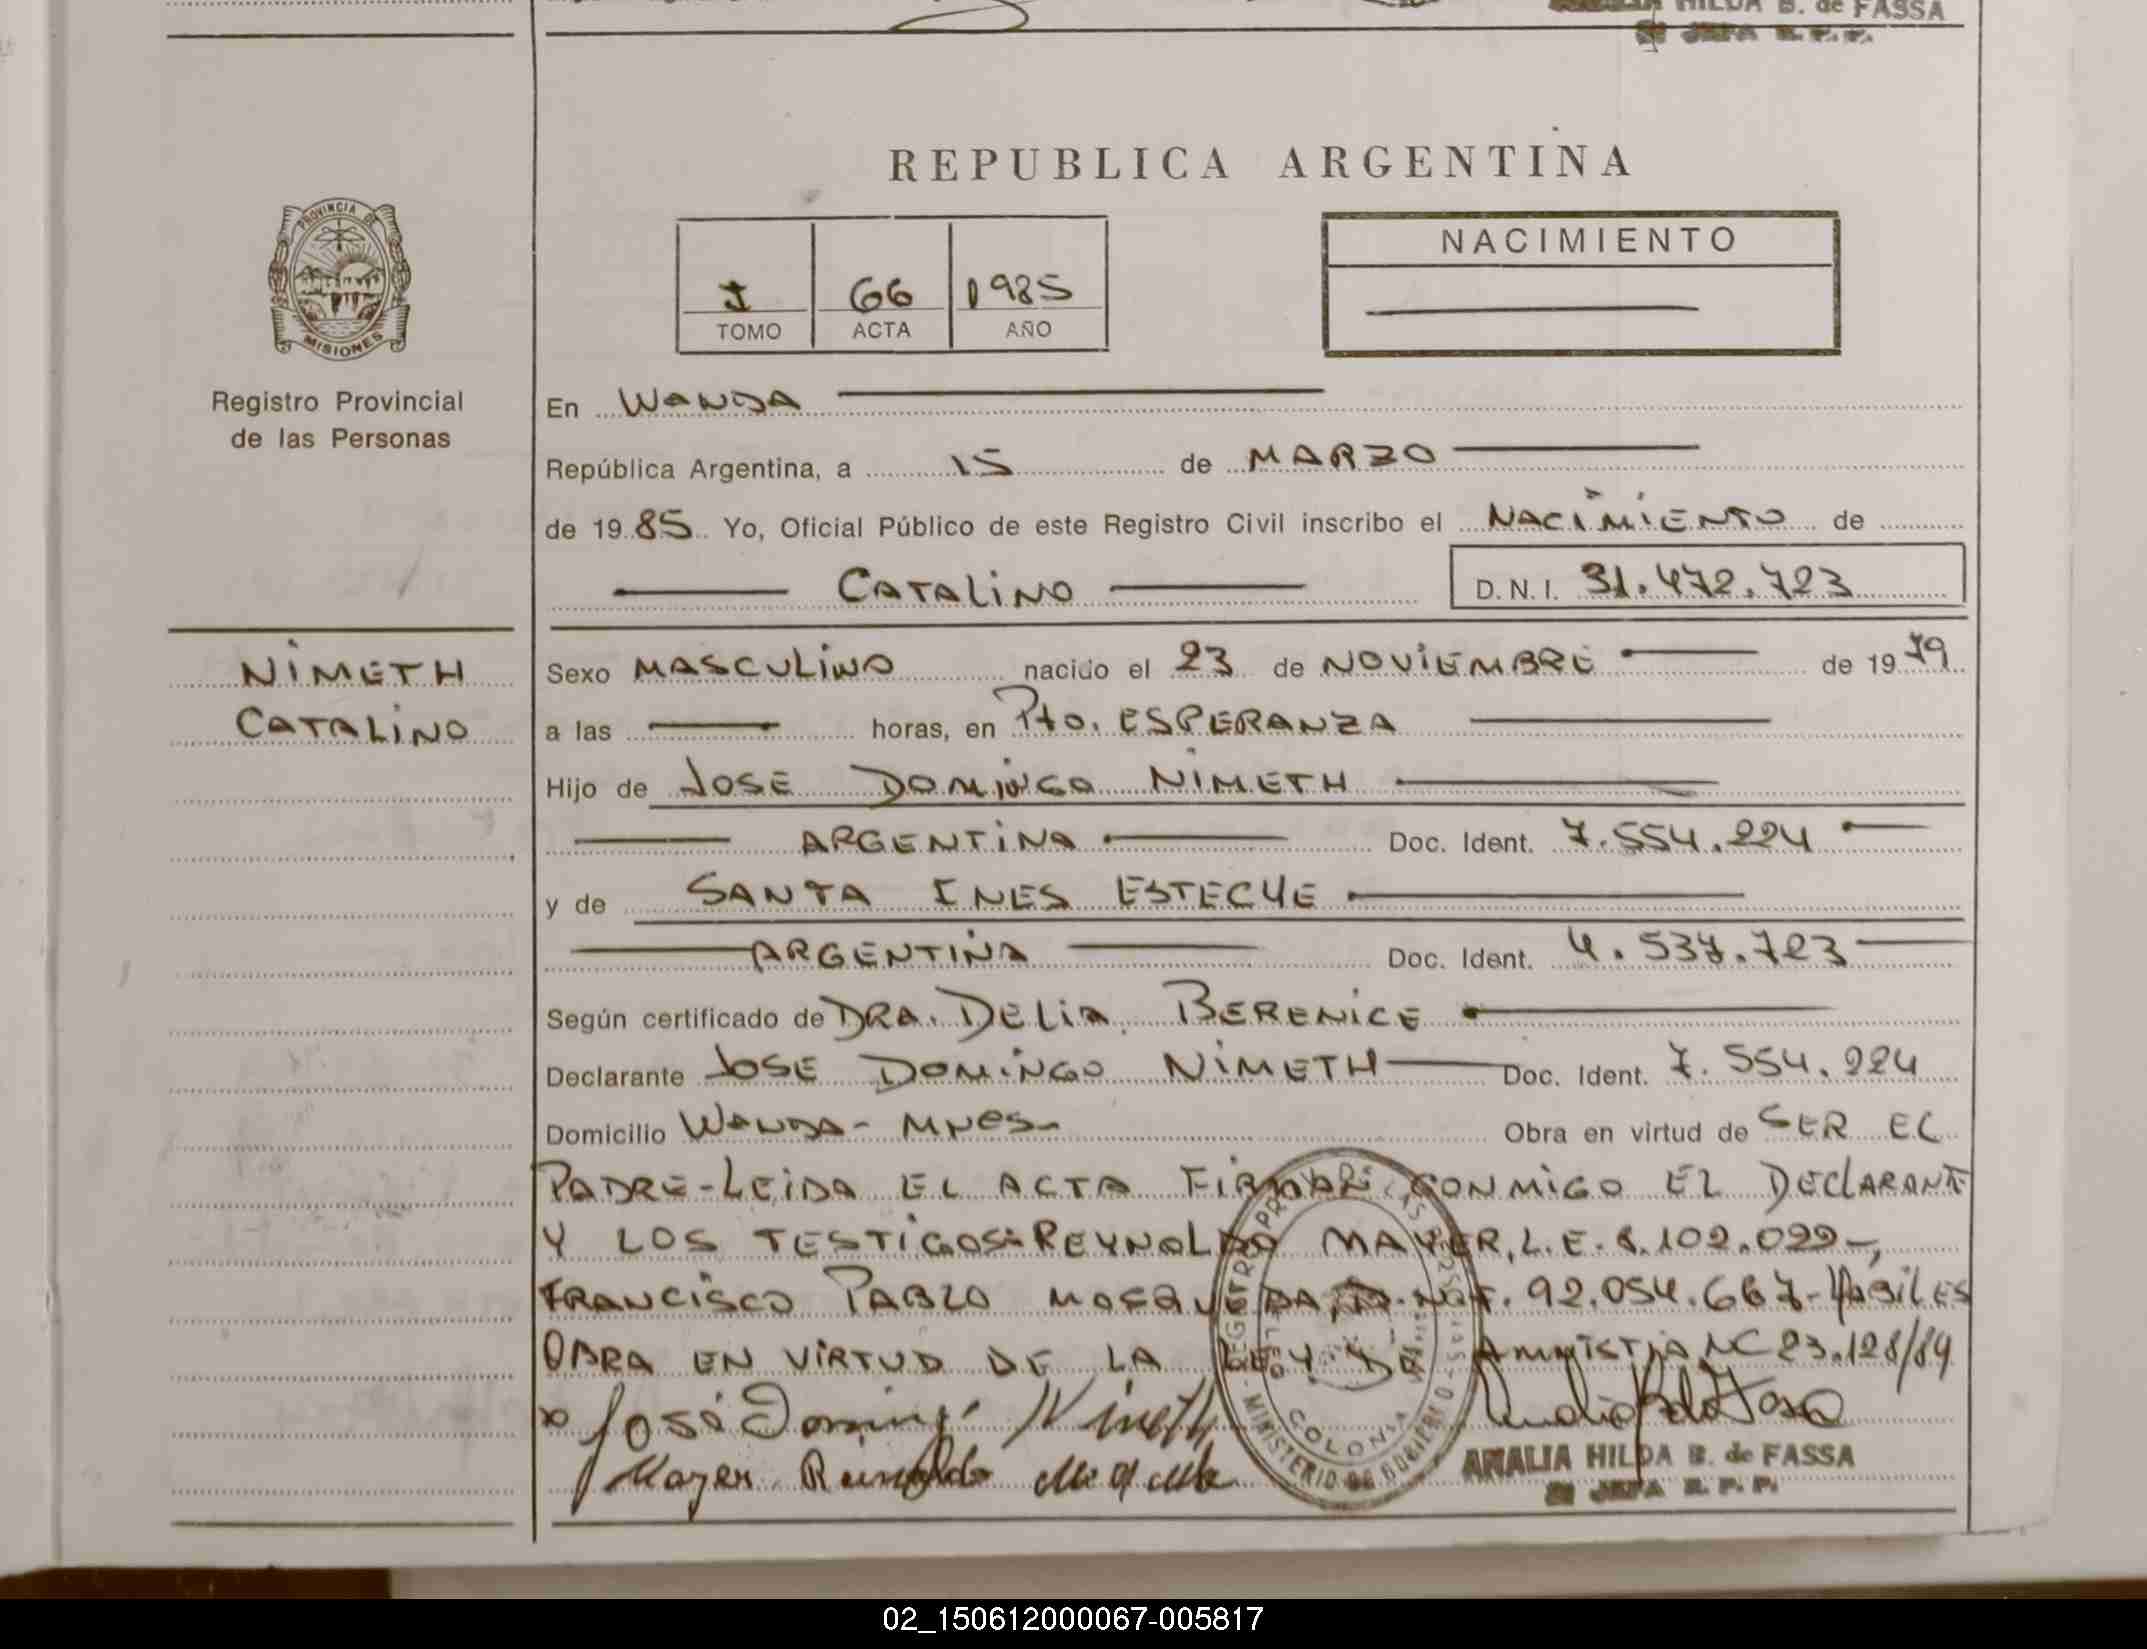 HILDA B. de FASSA
JEFA R. P. P.
REPUBLICA ARGENTINA
PROVINCIA DE
MISIONES
Registro Provincial
de las Personas
I 66 1985
TOMO ACTA AÑO
NACIMIENTO
En WANDA
República Argentina, a 15 de MARZO
de 1985 Yo, Oficial Público de este Registro Civil inscribo el NACIMIENTO de
CATALINO D.N.I. 31.472.723
NIMETH
CATALINO
Sexo MASCULINO nacido el 23 de NOVIEMBRE de 1979
a las horas, en Pto. ESPERANZA
Hijo de JOSE DOMINGO NIMETH
ARGENTINA Doc. Ident. 7.554.224
y de SANTA INES ESTECHE
ARGENTINA Doc. Ident. 4.537.723
Según certificado de DRA. DELIA BERENICE
Declarante JOSE DOMINGO NIMETH Doc. Ident. 7.554.224
Domicilio WANDA - MNES- Obra en virtud de SER EL
PADRE-LEIDA EL ACTA FIRMAN CONMIGO EL DECLARANTE
Y LOS TESTIGOS: REYNOLDO MAYER, L.E. 8.102.022-,
FRANCISCO PABLO MOSQUEDA, 92.054.667- HABILES
OBRA EN VIRTUD DE LA LEY DE AMNISTIA NC 23.128/84
José Domingo Nimeth
Mayer Reinaldo
REGISTRO PROV. DE LAS PERSONAS
MINISTERIO DE GOBIERNO
COLONIA
AMALIA HILDA B. de FASSA
JEFA R. P. P.
02_150612000067-005817